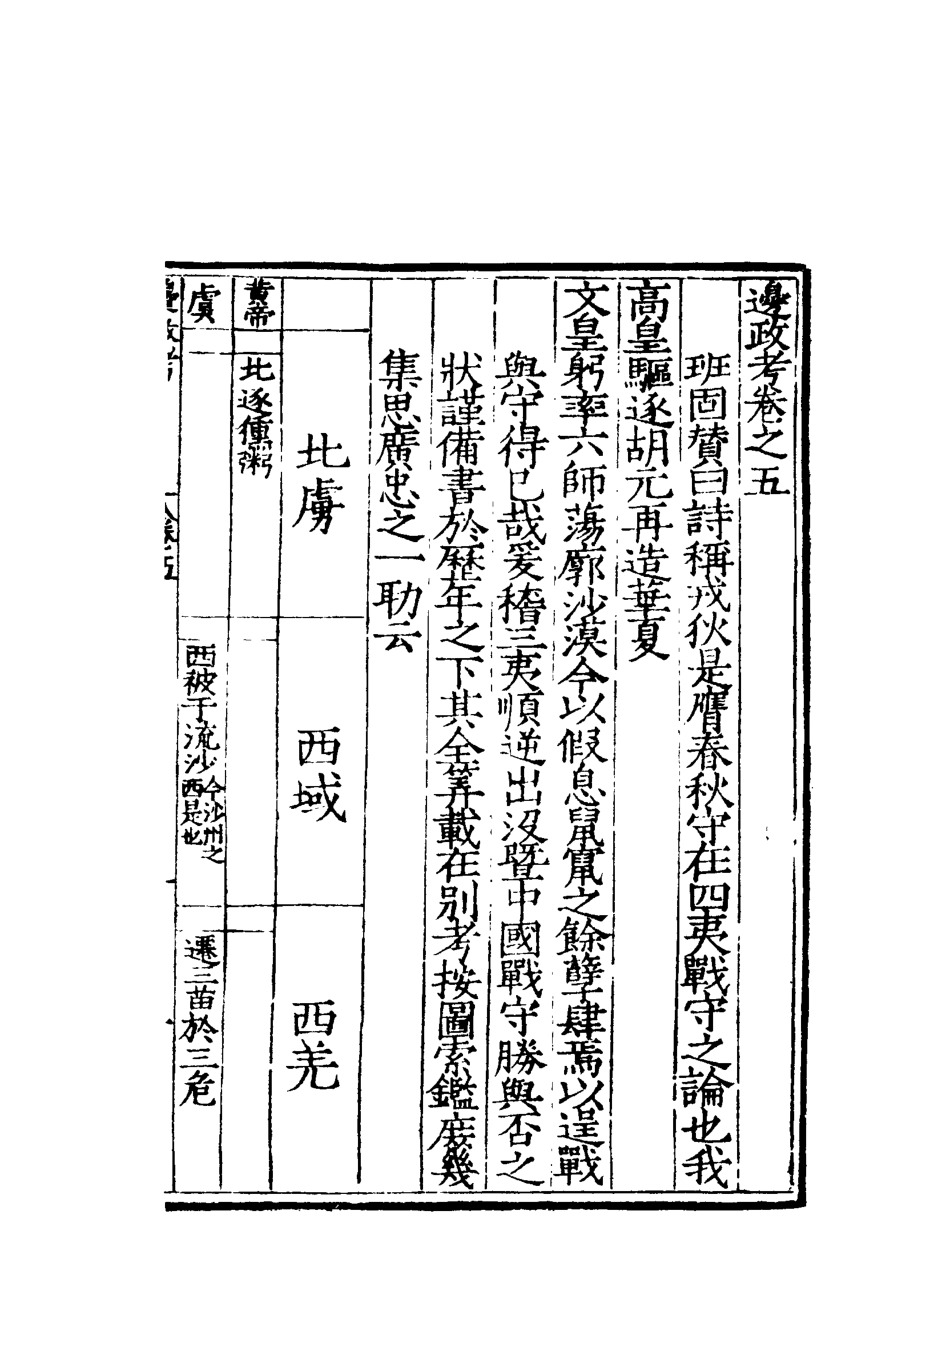 邊政考卷之五
班固賛曰詩稱戎狄是膺春秋守在四夷戰守之論也我
高皇驅逐胡元再造華夏
文皇躬率六師蕩廓沙漠今以假息鼠竄之餘孽肆焉以逞戰
與守得已哉爰稽三夷順逆出沒暨中國戰守勝與否之
狀謹備書於歷年之下其全筭載在別考按圖索鑑庻幾
集思廣忠之一助云
北虜
西域
西羌
黃帝
北逐獯粥
虞
西被于流沙
今沙州之
西是也
遷三苗於三危
邊政考
卷五